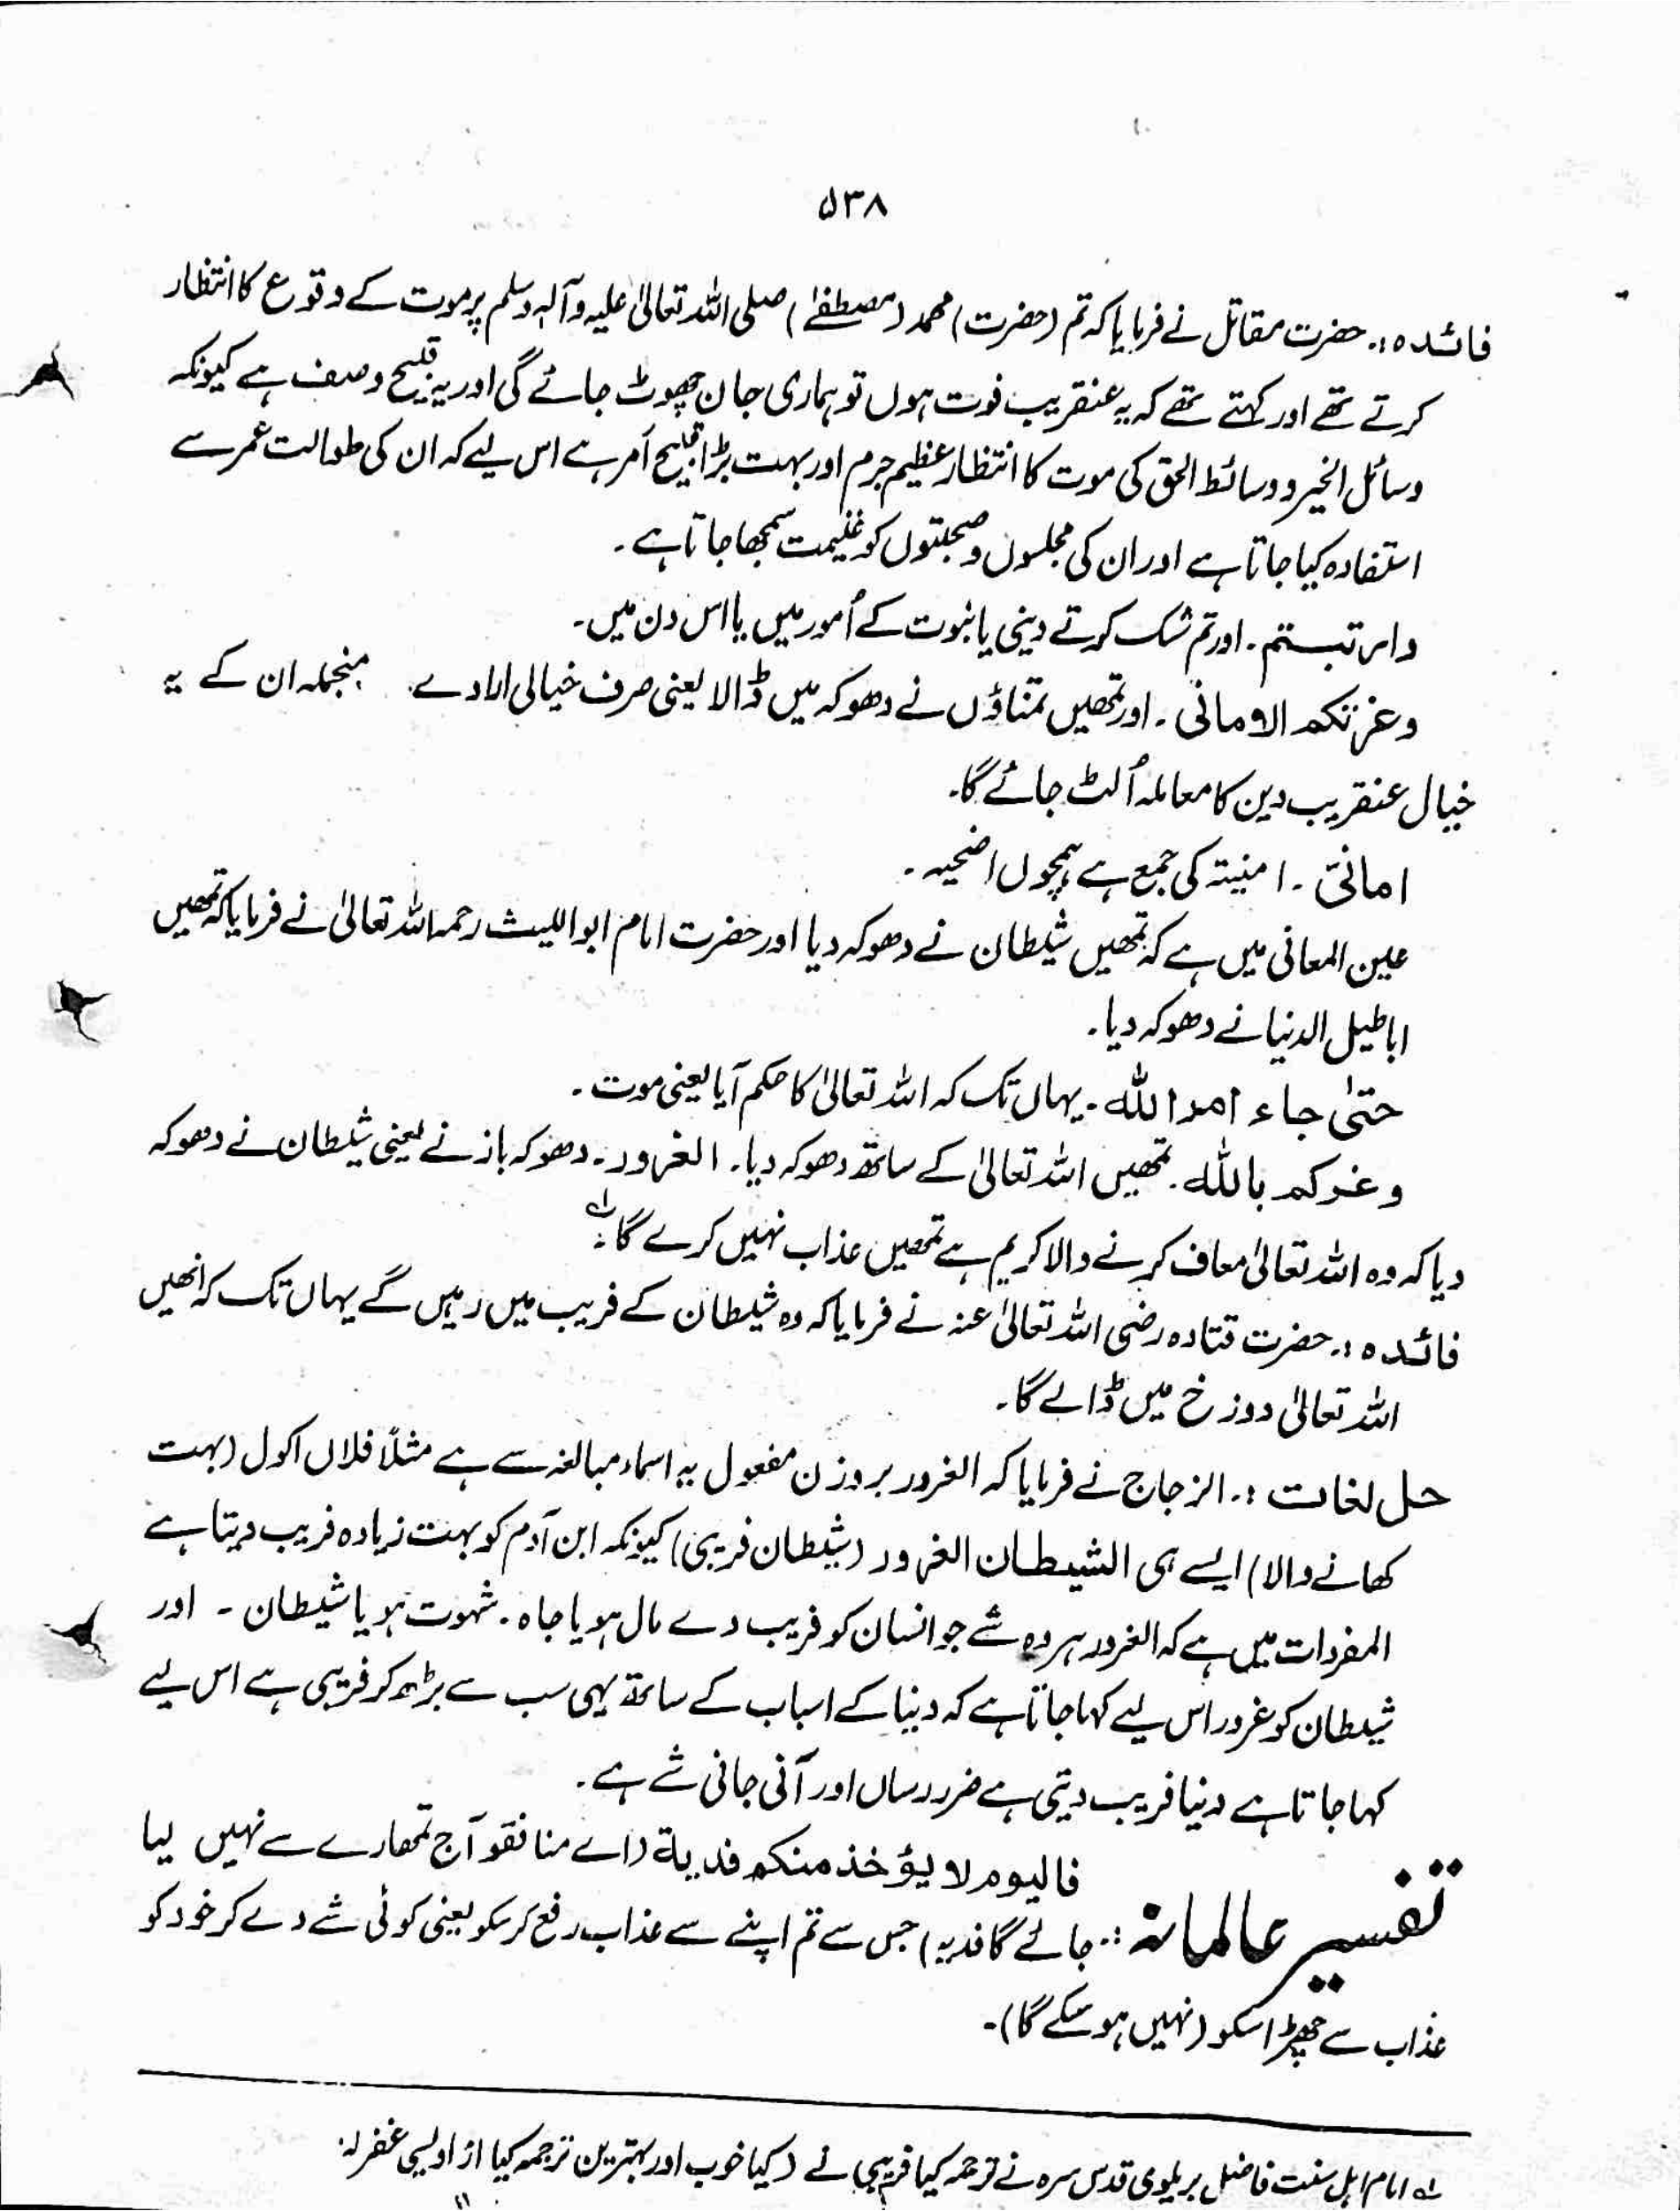 ۵۳۸
فائدہ :. حضرت مقاتل نے فرمایا کہ تم (حضرت) محمد (مصطفےٰ) صلی اللہ تعالیٰ علیہ وآلہ وسلم پر موت کے وقوع کا انتظار
کرتے تھے اور کہتے تھے کہ یہ عنقریب فوت ہوں تو ہماری جان چھوٹ جائے گی اور یہ قبیح وصف ہے کیونکہ
وسائل الخیر و وسائط الحق کی موت کا انتظار عظیم جرم اور بہت بڑا قبیح اَمر ہے اس لیے کہ ان کی طوالت عمر سے
استفادہ کیا جاتا ہے اور ان کی مجلسوں و صحبتوں کو غنیمت سمجھا جاتا ہے۔
وارتبستم۔ اور تم شک کرتے دینی یا نبوت کے اُمور میں یا اس دن میں۔
وغرتکم الامانی۔ اور تمھیں تمناؤں نے دھوکہ میں ڈالا یعنی صرف خیالی ارادے منجملہ ان کے یہ
خیال عنقریب دین کا معاملہ اُلٹ جائے گا۔
امانیّ۔ امنیتہ کی جمع ہے ہمچوں اضحیہ۔
عین المعانی میں ہے کہ تمھیں شیطان نے دھوکہ دیا اور حضرت امام ابواللیث رحمہ اللہ تعالیٰ نے فرمایا کہ تمھیں
اباطیل الدنیا نے دھوکہ دیا۔
حتیٰ جاء امر اللہ۔ یہاں تک کہ اللہ تعالیٰ کا حکم آیا یعنی موت۔
وغرکم باللہ۔ تمھیں اللہ تعالیٰ کے ساتھ دھوکہ دیا۔ الغرور۔ دھوکہ باز نے یعنی شیطان نے دھوکہ
دیا کہ وہ اللہ تعالیٰ معاف کرنے والا کریم ہے تمھیں عذاب نہیں کرے گا۔ لے
فائدہ :. حضرت قتادہ رضی اللہ تعالیٰ عنہ نے فرمایا کہ وہ شیطان کے فریب میں رہیں گے یہاں تک کہ انھیں
اللہ تعالیٰ دوزخ میں ڈالے گا۔
حل لغات :. الزجاج نے فرمایا کہ الغرور بروزن مفعول یہ اسماء مبالغہ سے ہے مثلاً فلاں اکول (بہت
کھانے والا) ایسے ہی الشیطان الغرور (شیطان فریبی) کیونکہ ابن آدم کو بہت زیادہ فریب دیتا ہے
المفردات میں ہے کہ الغرور ہر وہ شے جو انسان کو فریب دے مال ہو یا جاہ۔ شہوت ہو یا شیطان۔ اور
شیطان کو غرور اس لیے کہا جاتا ہے کہ دنیا کے اسباب کے ساتھ یہی سب سے بڑھ کر فریبی ہے اس لیے
کہا جاتا ہے دنیا فریب دیتی ہے ضرر رساں اور آنی جانی شے ہے۔
فالیوم لا یؤخذ منکم فدیة (اے منافقو آج تمھارے سے نہیں لیا
تفسیر عالمانہ :. جائے گا فدیہ) جس سے تم اپنے سے عذاب رفع کر سکو یعنی کوئی شے دے کر خود کو
عذاب سے چھڑا سکو (نہیں ہو سکے گا)۔
لے امام اہل سنت فاضل بریلوی قدس سرہ نے ترجمہ کیا فریبی نے (کیا خوب اور بہترین ترجمہ کیا از اویسی غفرلہ